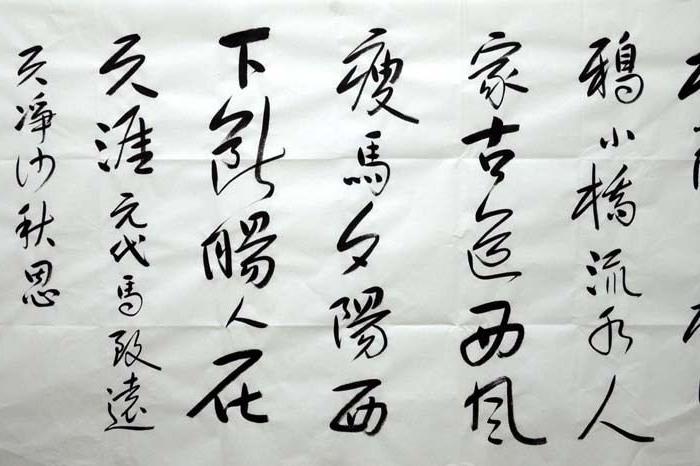 鴉小橋流水人
家古道西風
瘦馬夕陽西
下斷腸人在
天涯元代馬致遠
天淨沙秋思